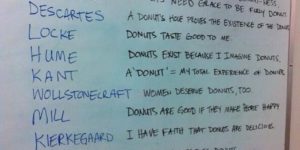 NEED GRACE TO BE FULLY DONUT.
DESCARTES A DONUT'S HOLE PROVES THE EXISTENCE OF THE DONUT
LOCKE DONUTS TASTE GOOD TO ME.
HUME DONUTS EXIST BECAUSE I IMAGINE DONUTS.
KANT A "DONUT" = MY TOTAL EXPERIENCE OF DONUTS
WOLLSTONECRAFT WOMEN DESERVE DONUTS, TOO.
MILL DONUTS ARE GOOD IF THEY MAKE MORE HAPPY
KIERKEGAARD I HAVE FAITH THAT DONUTS ARE DELICIOUS.